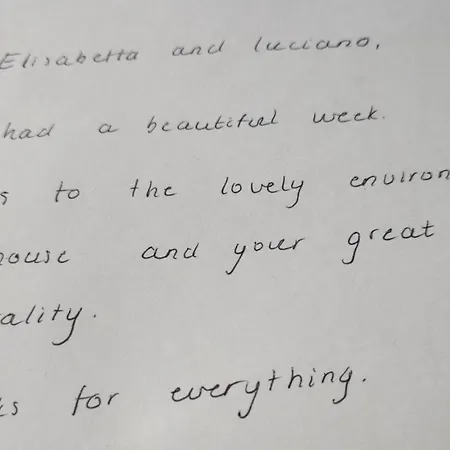 Elisabetta and luciano,
had a beautiful week.
s to the lovely environ
house and your great
ality.
ks for everything.